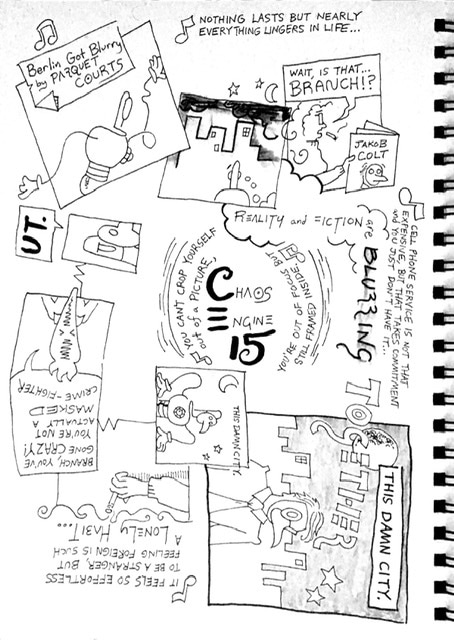 NOTHING LASTS BUT NEARLY
EVERYTHING LINGERS IN LIFE...
Berlin Got Blurry
by PARQUET
COURTS
WAIT, IS THAT...
BRANCH!?
JAKOB
COLT
REALITY and FICTION are
BLURRING
TOGETHER
CELL PHONE SERVICE IS NOT THAT
EXPENSIVE, BUT THAT TAKES COMMITMENT
and YOU JUST DON'T HAVE IT...
YOU CAN'T CROP YOURSELF
OUT of a PICTURE,
YOU'RE OUT OF FOCUS BUT
STILL FRAMED INSIDE.
CHAOS
ENGINE
15
UT.
THIS DAMN CITY.
THIS DAMN CITY.
BRANCH, YOU'VE
GONE CRAZY!
YOU'RE NOT
ACTUALLY A
MASKED
CRIME-FIGHTER
IT FEELS SO EFFORTLESS
TO BE A STRANGER, BUT
FEELING FOREIGN IS SUCH
A LONELY HABIT...